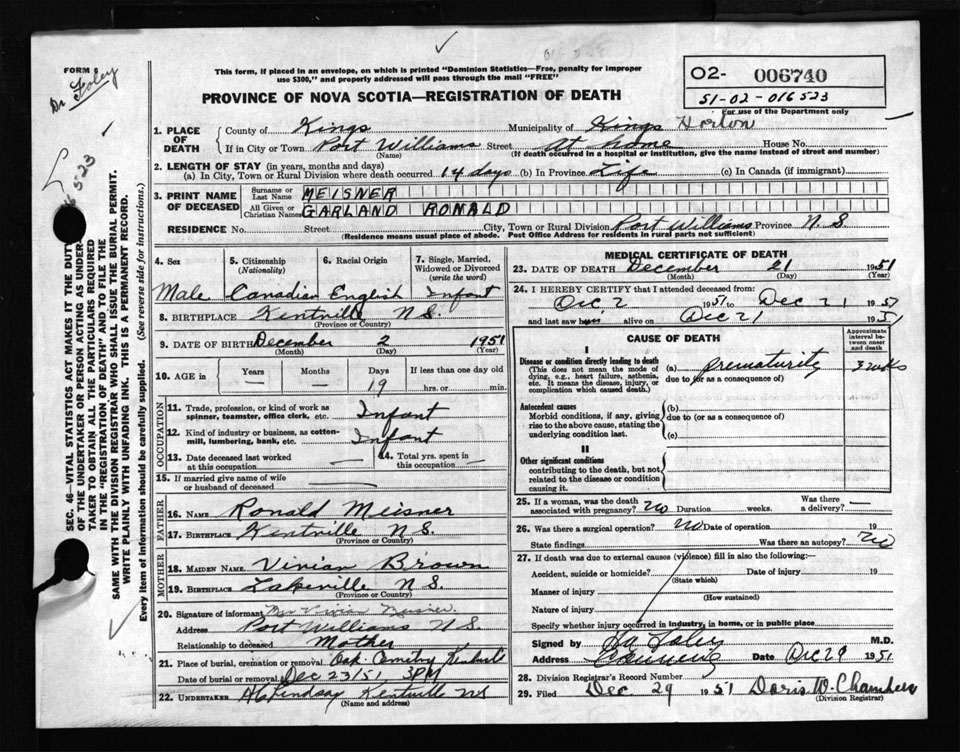 FORM
Dr Foley
This form, if placed in an envelope, on which is printed "Dominion Statistics—Free, penalty for improper
use $300," and properly addressed will pass through the mail "FREE"
PROVINCE OF NOVA SCOTIA—REGISTRATION OF DEATH
02- 006740
51-02-016523
For use of the Department only
SEC. 46—VITAL STATISTICS ACT MAKES IT THE DUTY
OF THE UNDERTAKER OR PERSON ACTING AS UNDER-
TAKER TO OBTAIN ALL THE PARTICULARS REQUIRED
IN THE "REGISTRATION OF DEATH" AND TO FILE THE
SAME WITH THE DIVISION REGISTRAR WHO SHALL ISSUE THE BURIAL PERMIT.
WRITE PLAINLY WITH UNFADING INK. THIS IS A PERMANENT RECORD.
Every item of information should be carefully supplied. (See reverse side for instructions.)
1. PLACE OF DEATH County of Kings Municipality of Kings Horton
If in City or Town Port Williams (Name) Street At Home House No.
(If death occurred in a hospital or institution, give the name instead of street and number)
2. LENGTH OF STAY (in years, months and days)
(a) In City, Town or Rural Division where death occurred 14 days (b) In Province Life (c) In Canada (if immigrant)
3. PRINT NAME OF DECEASED Surname or Last Name MEISNER
All Given or Christian Names GARLAND RONALD
RESIDENCE No. Street City, Town or Rural Division Port Williams Province N.S.
(Residence means usual place of abode. Post Office Address for residents in rural parts not sufficient)
4. Sex 5. Citizenship (Nationality) 6. Racial Origin 7. Single, Married, Widowed or Divorced (write the word)
Male Canadian English Infant
8. BIRTHPLACE Kentville N.S.
(Province or Country)
9. DATE OF BIRTH December 2 1951
(Month) (Day) (Year)
10. AGE in Years Months Days If less than one day old
— — 19 hrs. or min.
OCCUPATION
11. Trade, profession, or kind of work as spinner, teamster, office clerk, etc. Infant
12. Kind of industry or business, as cotton-mill, lumbering, bank, etc. Infant
13. Date deceased last worked at this occupation — 14. Total yrs. spent in this occupation —
15. If married give name of wife or husband of deceased —
FATHER
16. NAME Ronald Meisner
17. BIRTHPLACE Kentville N.S.
(Province or Country)
MOTHER
18. MAIDEN NAME Vivian Brown
19. BIRTHPLACE Lakeville N.S.
(Province or Country)
20. Signature of informant Mrs Vivian Meisner.
Address Port Williams N.S.
Relationship to deceased Mother
21. Place of burial, cremation or removal Oak Cemetry
Date of burial or removal Dec 23/51 3PM
22. UNDERTAKER Lindsay Kentville NS
(Name and address)
MEDICAL CERTIFICATE OF DEATH
23. DATE OF DEATH December 21 1951
(Month) (Day) (Year)
24. I HEREBY CERTIFY that I attended deceased from:
Dec 2 1951 to Dec 21 1951
and last saw him alive on Dec 21 1951
CAUSE OF DEATH
Approximate interval between onset and death
I
Disease or condition directly leading to death
(This does not mean the mode of dying, e.g., heart failure, asthenia, etc. It means the disease, injury, or complication which caused death.)
(a) Prematurity 3 weeks
due to (or as a consequence of)
Antecedent causes
Morbid conditions, if any, giving rise to the above cause, stating the underlying condition last.
(b)
due to (or as a consequence of)
(c)
II
Other significant conditions
contributing to the death, but not related to the disease or condition causing it.
25. If a woman, was the death associated with pregnancy? no Duration weeks. Was there a delivery? —
26. Was there a surgical operation? no Date of operation 19
State findings Was there an autopsy? no
27. If death was due to external causes (violence) fill in also the following:—
Accident, suicide or homicide? Date of injury 19
(State which)
Manner of injury
(How sustained)
Nature of injury
Specify whether injury occurred in industry, in home, or in public place
Signed by Foley M.D.
Address Canning Date Dec 29 1951
28. Division Registrar's Record Number
29. Filed Dec 29 1951 Doris W. Chambers
(Division Registrar)